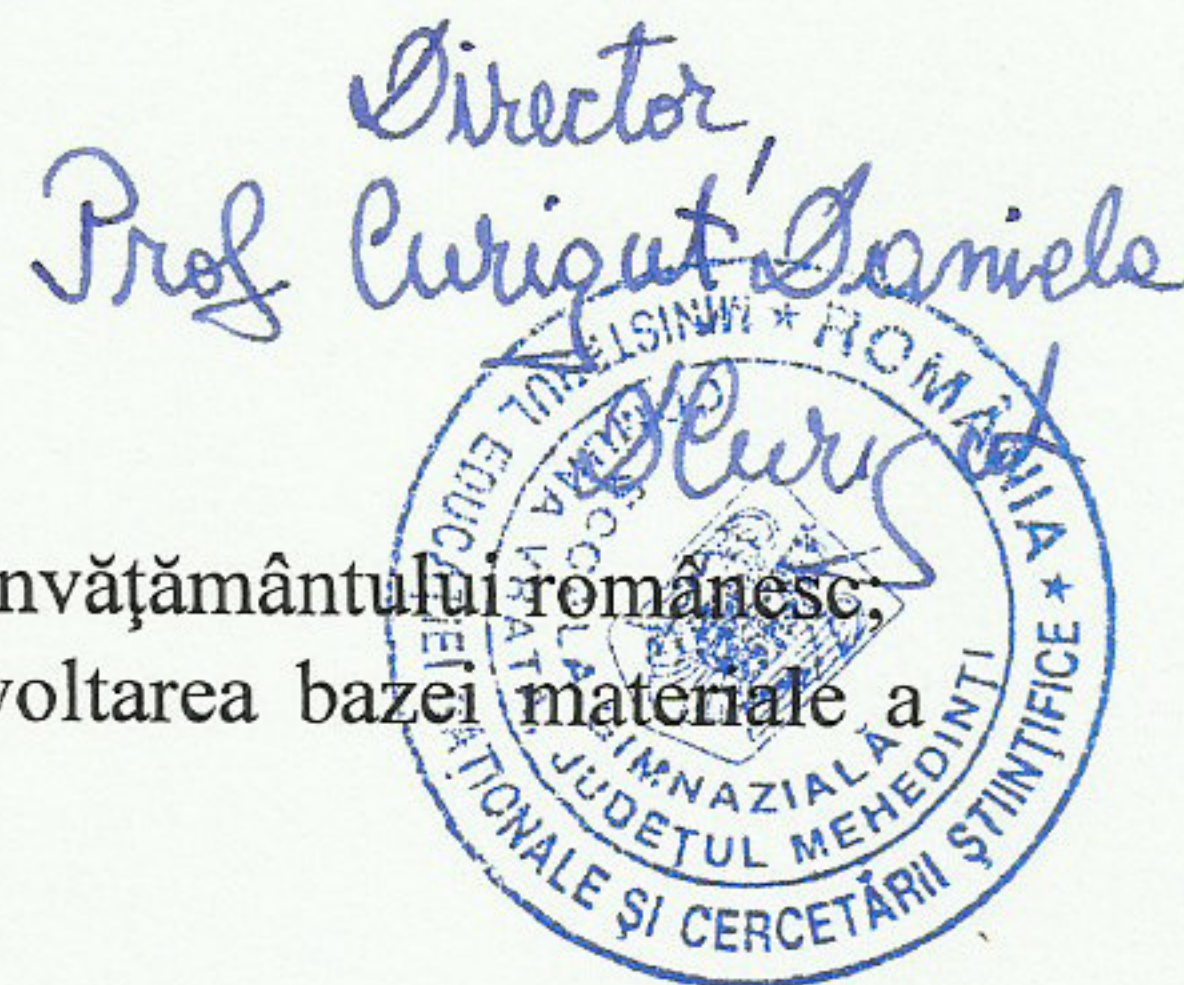 Director,
Prof Curiguț Daniela
nvăţământului românesc;
voltarea bazei materiale a
ROMÂNIA * MINISTERUL EDUCAŢIEI NAŢIONALE ŞI CERCETĂRII ŞTIINŢIFICE *
ŞCOALA GIMNAZIALĂ
COMUNA VRATA, JUDEŢUL MEHEDINŢI